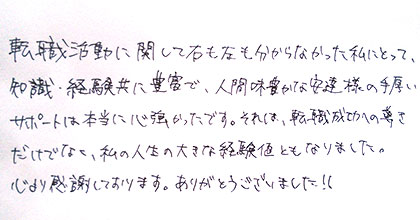 転職活動に関して右も左も分からなかった私にとって、
知識・経験共に豊富で、人間味豊かな安達様の手厚い
サポートは本当に心強かったです。それは、転職成功への導き
だけでなく、私の人生の大きな経験値ともなりました。
心より感謝しております。ありがとうございました!!